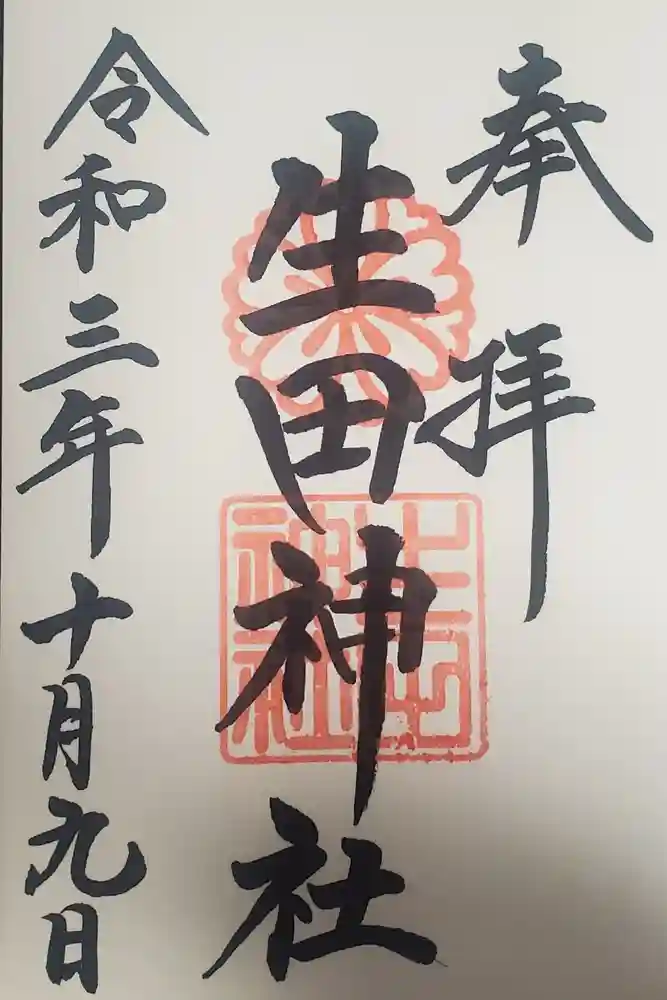 奉拝
生田神社
令和三年十月九日
生田
神社